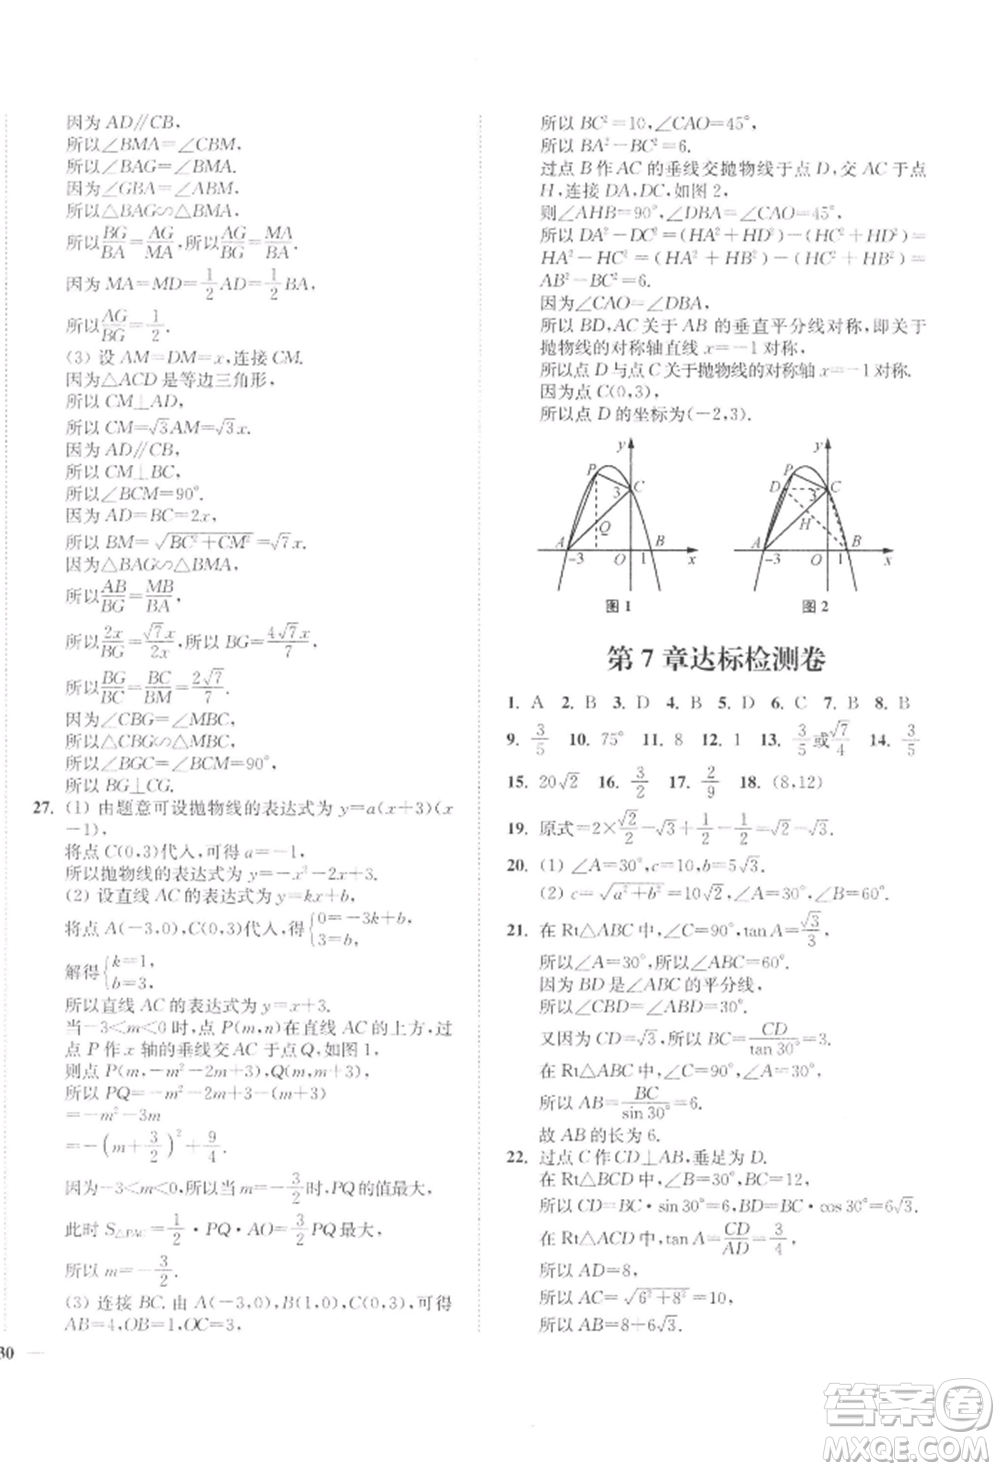 因为 AD∥CB,
所以∠BMA=∠CBM,
所以∠BAG=∠ABM.
因为∠GBA=∠ABM,
所以△BAG∽△BMA,
所以BG/BA=AG/MA,所以AG/BG=MA/BA.
因为 MA=MD=1/2AD=1/2BA,
所以AG/BG=1/2.
(3) 设 AM=DM=x,连接 CM.
因为△ACD是等边三角形,
所以 CM⊥AD,
所以 CM=√3AM=√3x.
因为 AD∥CB,
所以 CM⊥BC,
所以∠BCM=90°.
因为 AD=BC=2x,
所以 BM=√(BC²+CM²)=√7x.
因为△BAG∽△BMA,
所以AB/BG=MB/BA,
所以2x/BG=√7x/2x,所以 BG=4√7x/7.
所以BG/BC=BC/BM=2√7/7.
因为∠CBG=∠MBC,
所以△CBG∽△MBC,
所以∠BGC=∠BCM=90°,
所以 BG⊥CG.
27. (1) 由题意可设抛物线的表达式为 y=a(x+3)(x
-1),
将点 C(0,3)代入,可得 a=-1,
所以抛物线的表达式为 y=-x²-2x+3.
(2) 设直线 AC 的表达式为 y=kx+b,
将点 A(-3,0),C(0,3)代入,得{0=-3k+b, 3=b,
解得{k=1, b=3,
所以直线 AC 的表达式为 y=x+3.
当-3<m<0 时,点 P(m,n)在直线 AC 的上方,过
点 P 作 x 轴的垂线交AC 于点 Q,如图 1,
则点 P(m,-m²-2m+3),Q(m,m+3),
所以 PQ=-m²-2m+3-(m+3)
=-m²-3m
=-(m+3/2)²+9/4.
因为-3<m<0,所以当 m=-3/2时,PQ的值最大,
此时 S△PAC=1/2·PQ·AO=3/2PQ最大,
所以 m=-3/2.
(3) 连接 BC. 由 A(-3,0),B(1,0),C(0,3),可得
AB=4,OB=1,OC=3,
30
所以 BC²=10,∠CAO=45°,
所以 BA²-BC²=6.
过点 B 作 AC 的垂线交抛物线于点 D,交 AC 于点
H,连接 DA,DC,如图 2,
则∠AHB=90°,∠DBA=∠CAO=45°,
所以 DA²-DC²=(HA²+HD²)-(HC²+HD²)=
HA²-HC²=(HA²+HB²)-(HC²+HB²)=
AB²-BC²=6.
因为∠CAO=∠DBA,
所以 BD,AC 关于 AB 的垂直平分线对称,即关于
抛物线的对称轴直线 x=-1 对称,
所以点 D 与点 C 关于抛物线的对称轴对称.
因为点 C(0,3),
所以点 D 的坐标为(-2,3).
y
P
C
3
Q
A
-3
O
1
B
x
图 1
y
P
D
C
3
H
A
-3
O
1
B
x
图 2
第 7 章达标检测卷
1. A 2. B 3. D 4. B 5. D 6. C 7. B 8. B
9. 3/5 10. 75° 11. 8 12. 1 13. 3/5或√7/4 14. 3/5
15. 20√2 16. 3/2 17. 2/9 18. (8,12)
19. 原式=2×√2/2-√3+1/2-1/2=√2-√3.
20. (1) ∠A=30°,c=10,b=5√3.
(2) c=√(a²+b²)=10√2,∠A=30°,∠B=60°.
21. 在 Rt△ABC 中,∠C=90°,tan A=√3/3,
所以∠A=30°,所以∠ABC=60°.
因为 BD 是∠ABC 的平分线,
所以∠CBD=∠ABD=30°.
又因为 CD=√3,所以 BC=CD/tan 30°=3.
在 Rt△ABC 中,∠C=90°,∠A=30°,
所以 AB=BC/sin 30°=6.
故 AB 的长为 6.
22. 过点 C 作 CD⊥AB,垂足为 D.
在 Rt△BCD 中,∠B=30°,BC=12,
所以 CD=BC·sin30°=6,BD=BC·cos 30°=6√3.
在 Rt△ACD 中,tan A=CD/AD=3/4,
所以 AD=8,
所以 AC=√(6²+8²)=10,
所以 AB=8+6√3.
答案圈
MXQE.COM